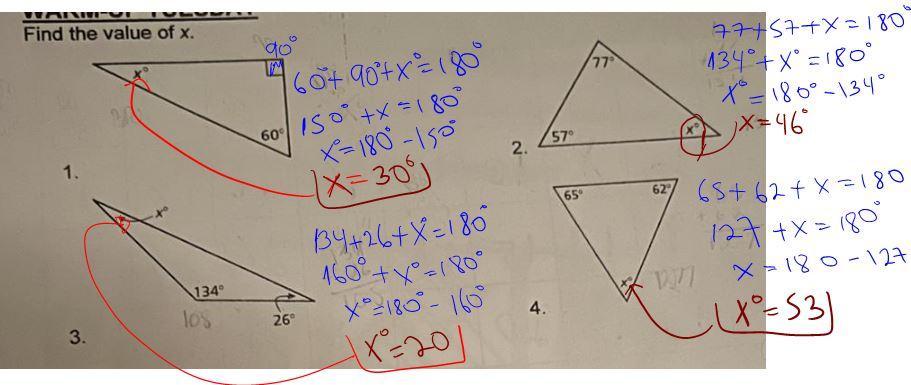 WARM-UP TUESDAY
Find the value of x.
90°
x°
60°
1.
60°+90°+x°=180°
150°+x=180°
x°=180°-150°
x=30°
77°
57°
x°
2.
77+57+x=180°
134°+x°=180°
x°=180°-134°
x=46°
x°
134°
26°
108
3.
134+26+x°=180°
160°+x°=180°
x°=180°-160°
x°=20
65°
62°
x°
4.
65+62+x=180
127+x=180°
x=180-127
x°=53